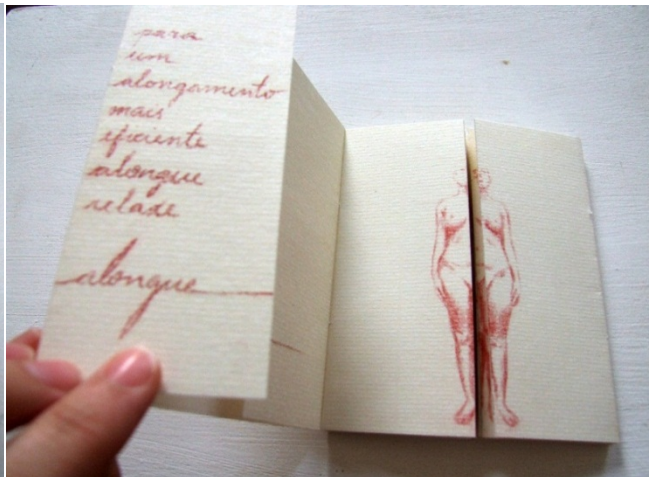 para
um
alongamento
mais
eficiente
alongue
relaxe
alongue